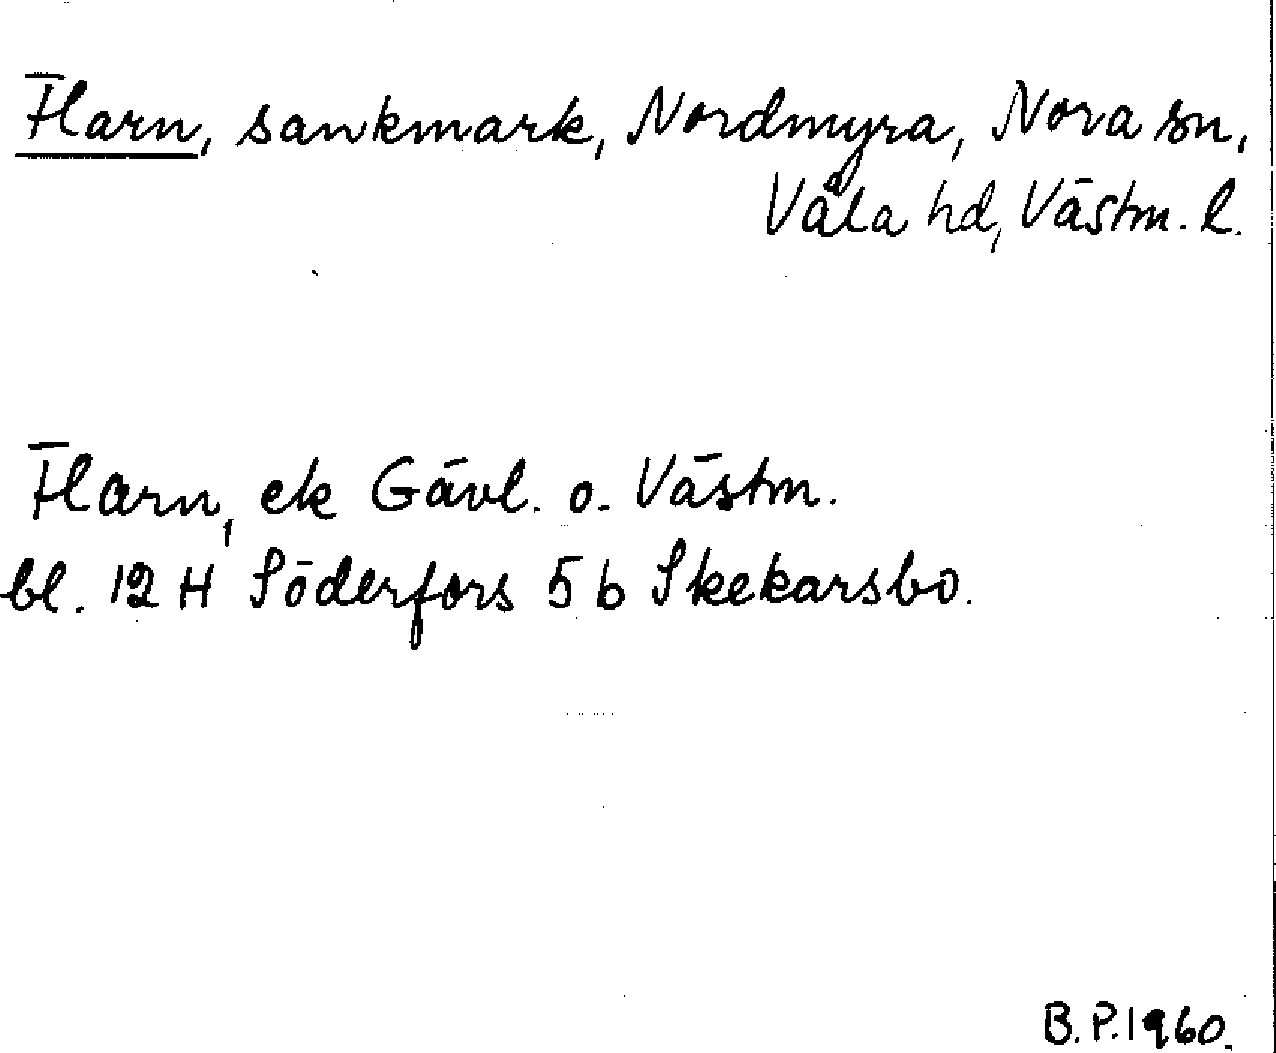 Flarn, sankmark, Nordmyra, Nora sn,
Våla hd, Västm. l.
Flarn, ek Gävl. o. Västm.
bl. 12 H Söderfors 5 b Skekarsbo.
B.P. 1960.